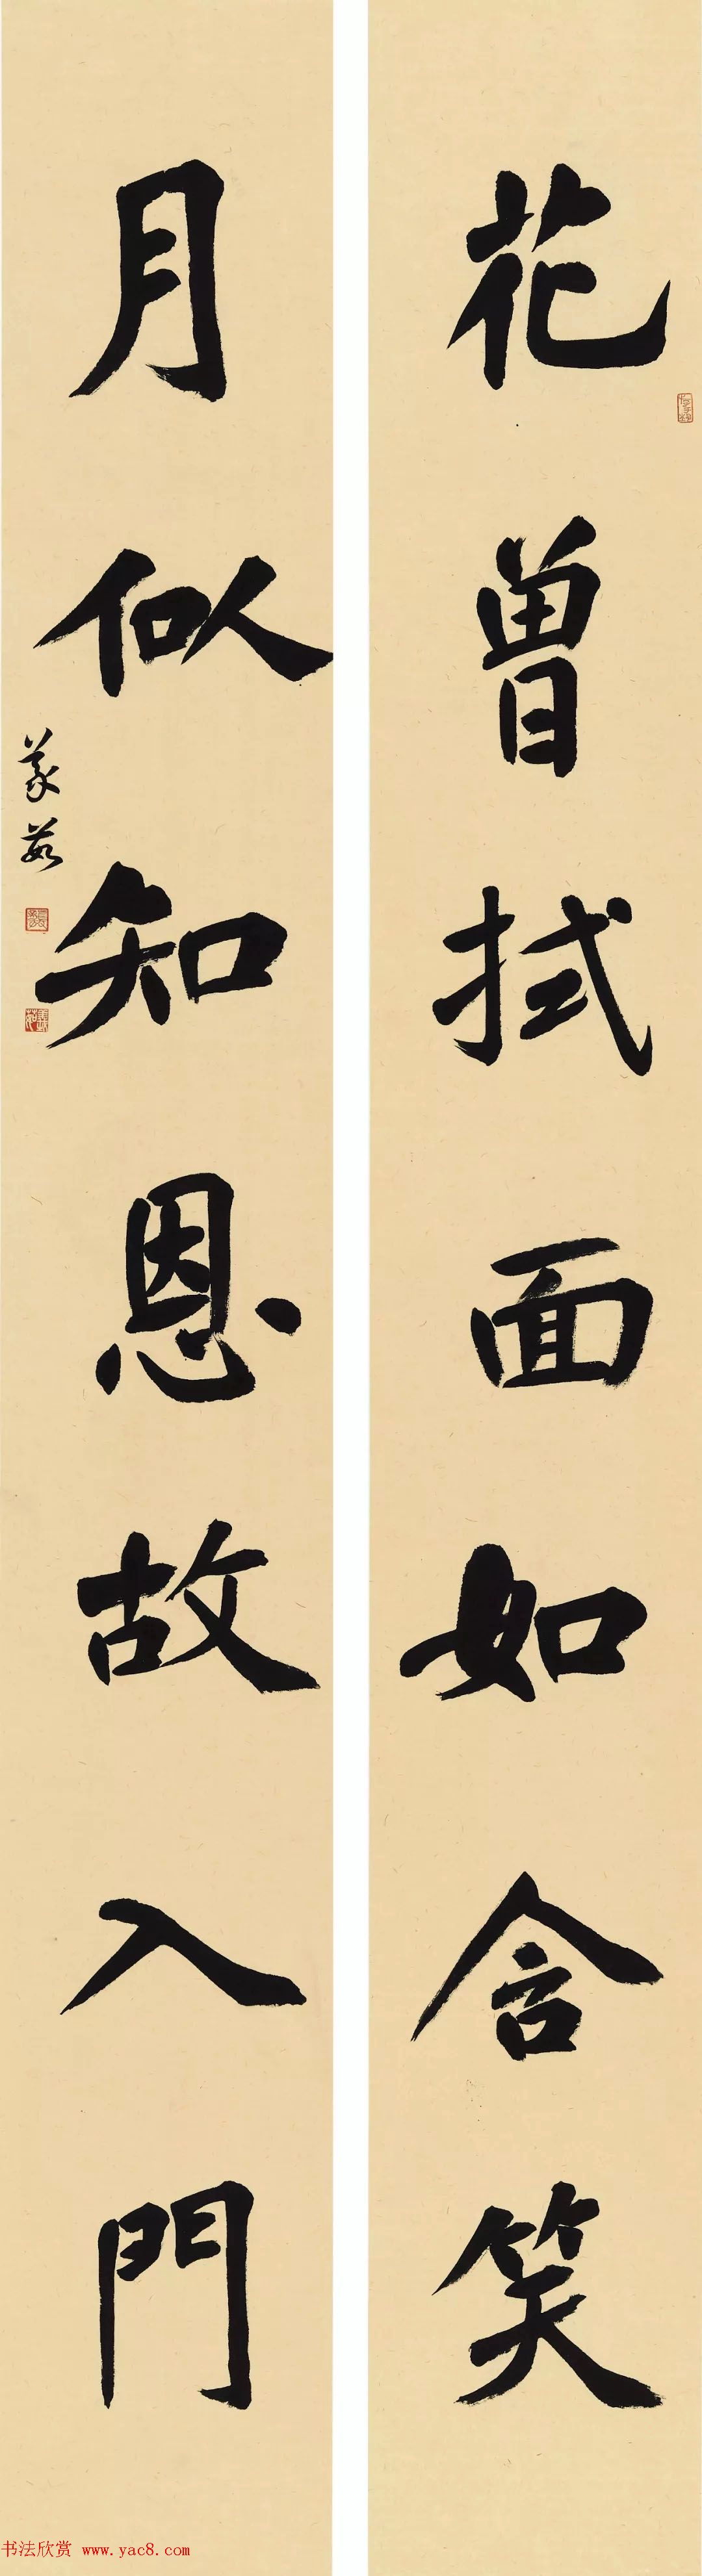 花曾拭面如含笑
月似知恩故入門
书法欣赏 www.yac8.com